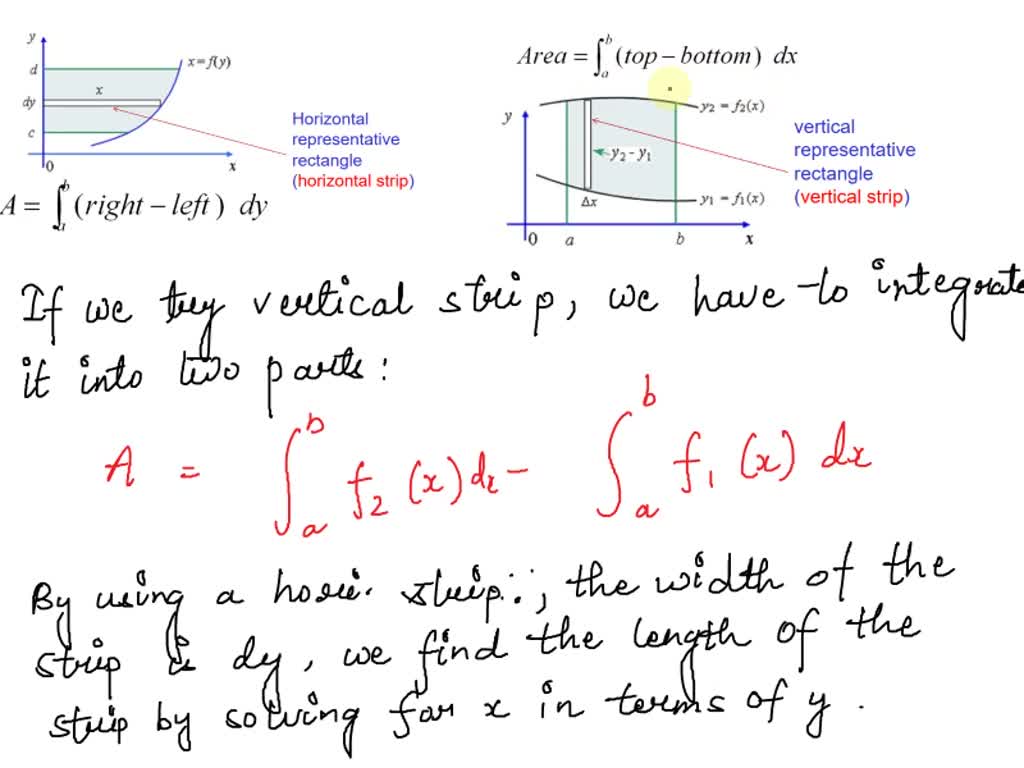 y
d
x = f(y)
x
dy
c
0
x
Horizontal
representative
rectangle
(horizontal strip)
A = ∫_a^b (right − left) dy
Area = ∫_a^b (top − bottom) dx
y
y₂ = f₂(x)
y₂ − y₁
Δx
y₁ = f₁(x)
0
a
b
x
vertical
representative
rectangle
(vertical strip)
If we try vertical strip, we have to integrate
it into two parts:
A = ∫_a^b f₂(x) dx − ∫_a^b f₁(x) dx
By using a hori. strip:, the width of the
strip is dy, we find the length of the
strip by solving for x in terms of y.